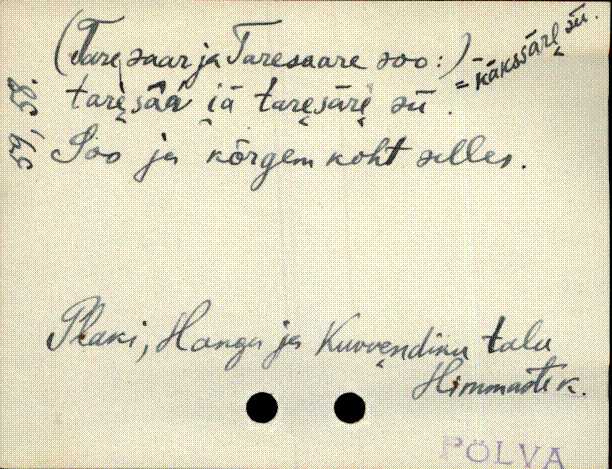 (Taresaar ja Taresaare soo:) = käkssäre̬ sū.
tare̬sāa i̬ä tare̬säre̬ sū.
Soo ja kõrgem koht selles.
Plaki, Hanga ja Kuvvendiku talu
Himmaste k.
PÕLVA